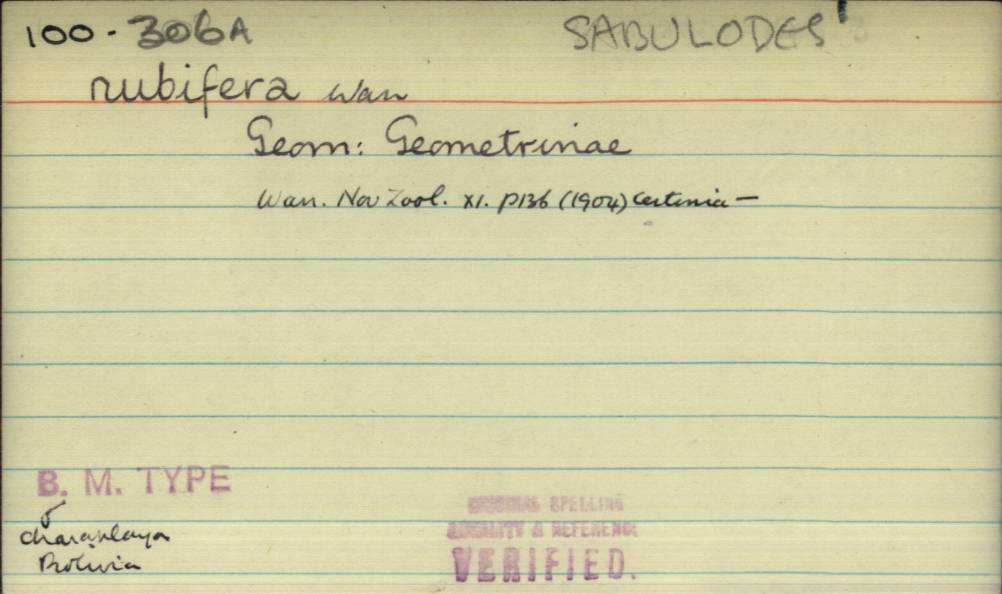 100-306A SABULODES
rubifera Warr
Geom: Geometrinae
Warr. Nov Zool. XI. p136 (1904) Certinia —
B. M. TYPE
♂
Charaplaya
Bolivia
ORIGINAL SPELLING
LOCALITY & REFERENCE
VERIFIED.